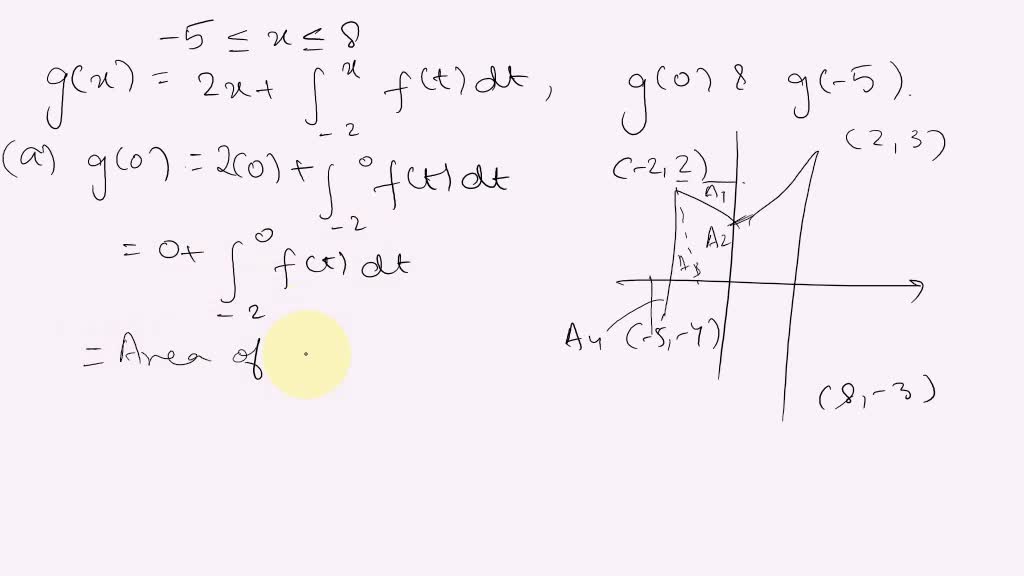 -5 ≤ x ≤ 8
g(x) = 2x + ∫_{-2}^{x} f(t) dt, g(0) & g(-5).
(a) g(0) = 2(0) + ∫_{-2}^{0} f(t) dt
= 0 + ∫_{-2}^{0} f(t) dt
= Area of
(2, 3)
(-2, 2)
A1
A2
A3
A4 (-5, -4)
(8, -3)